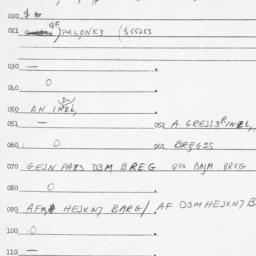 020 $
021 )PALQNK3 ($55253
030 —
040 0
050 AN INZL,
051 — 052 A GRESS3P/NZL,
060 0 062 BREG25
070 GESN PAT3 D3M BREG QOS BAJM BREG
080 0
090 AF HEJXN7 BARG/ AF D3MHEJXN7 B
100 0
110 —